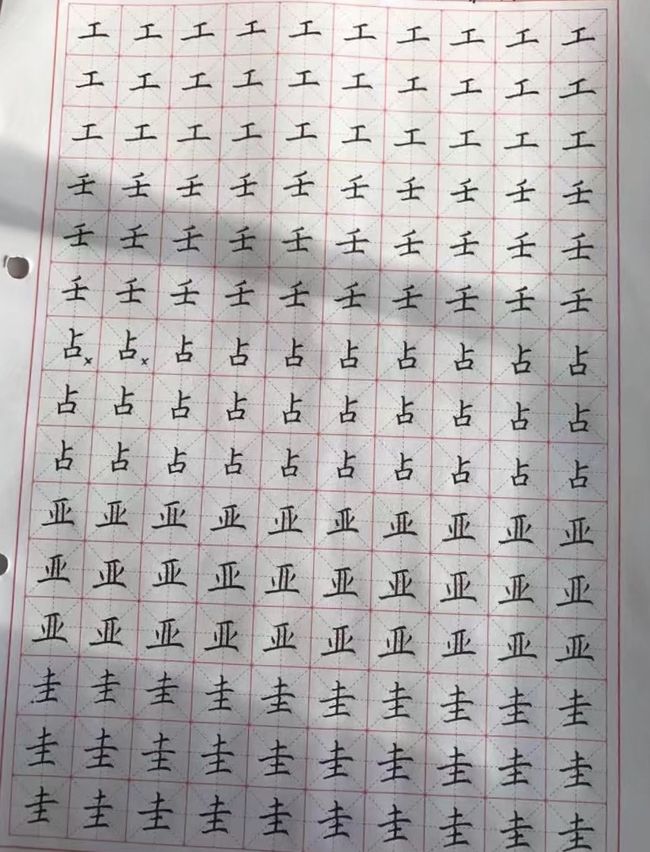 工工工工工工工工工工
工工工工工工工工工工
工工工工工工工工工工
壬壬壬壬壬壬壬壬壬壬
壬壬壬壬壬壬壬壬壬壬
壬壬壬壬壬壬壬壬壬壬
占×占×占占占占占占占占
占占占占占占占占占占
占占占占占占占占占占
亚亚亚亚亚亚亚亚亚亚
亚亚亚亚亚亚亚亚亚亚
亚亚亚亚亚亚亚亚亚亚
圭圭圭圭圭圭圭圭圭圭
圭圭圭圭圭圭圭圭圭圭
圭圭圭圭圭圭圭圭圭圭